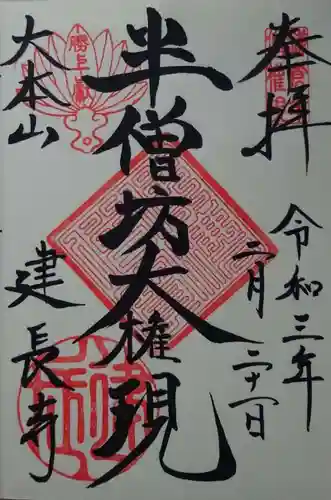 奉拝
令和三年
二月二十一日
半僧坊大権現
大本山
建長寺
勝上嶽